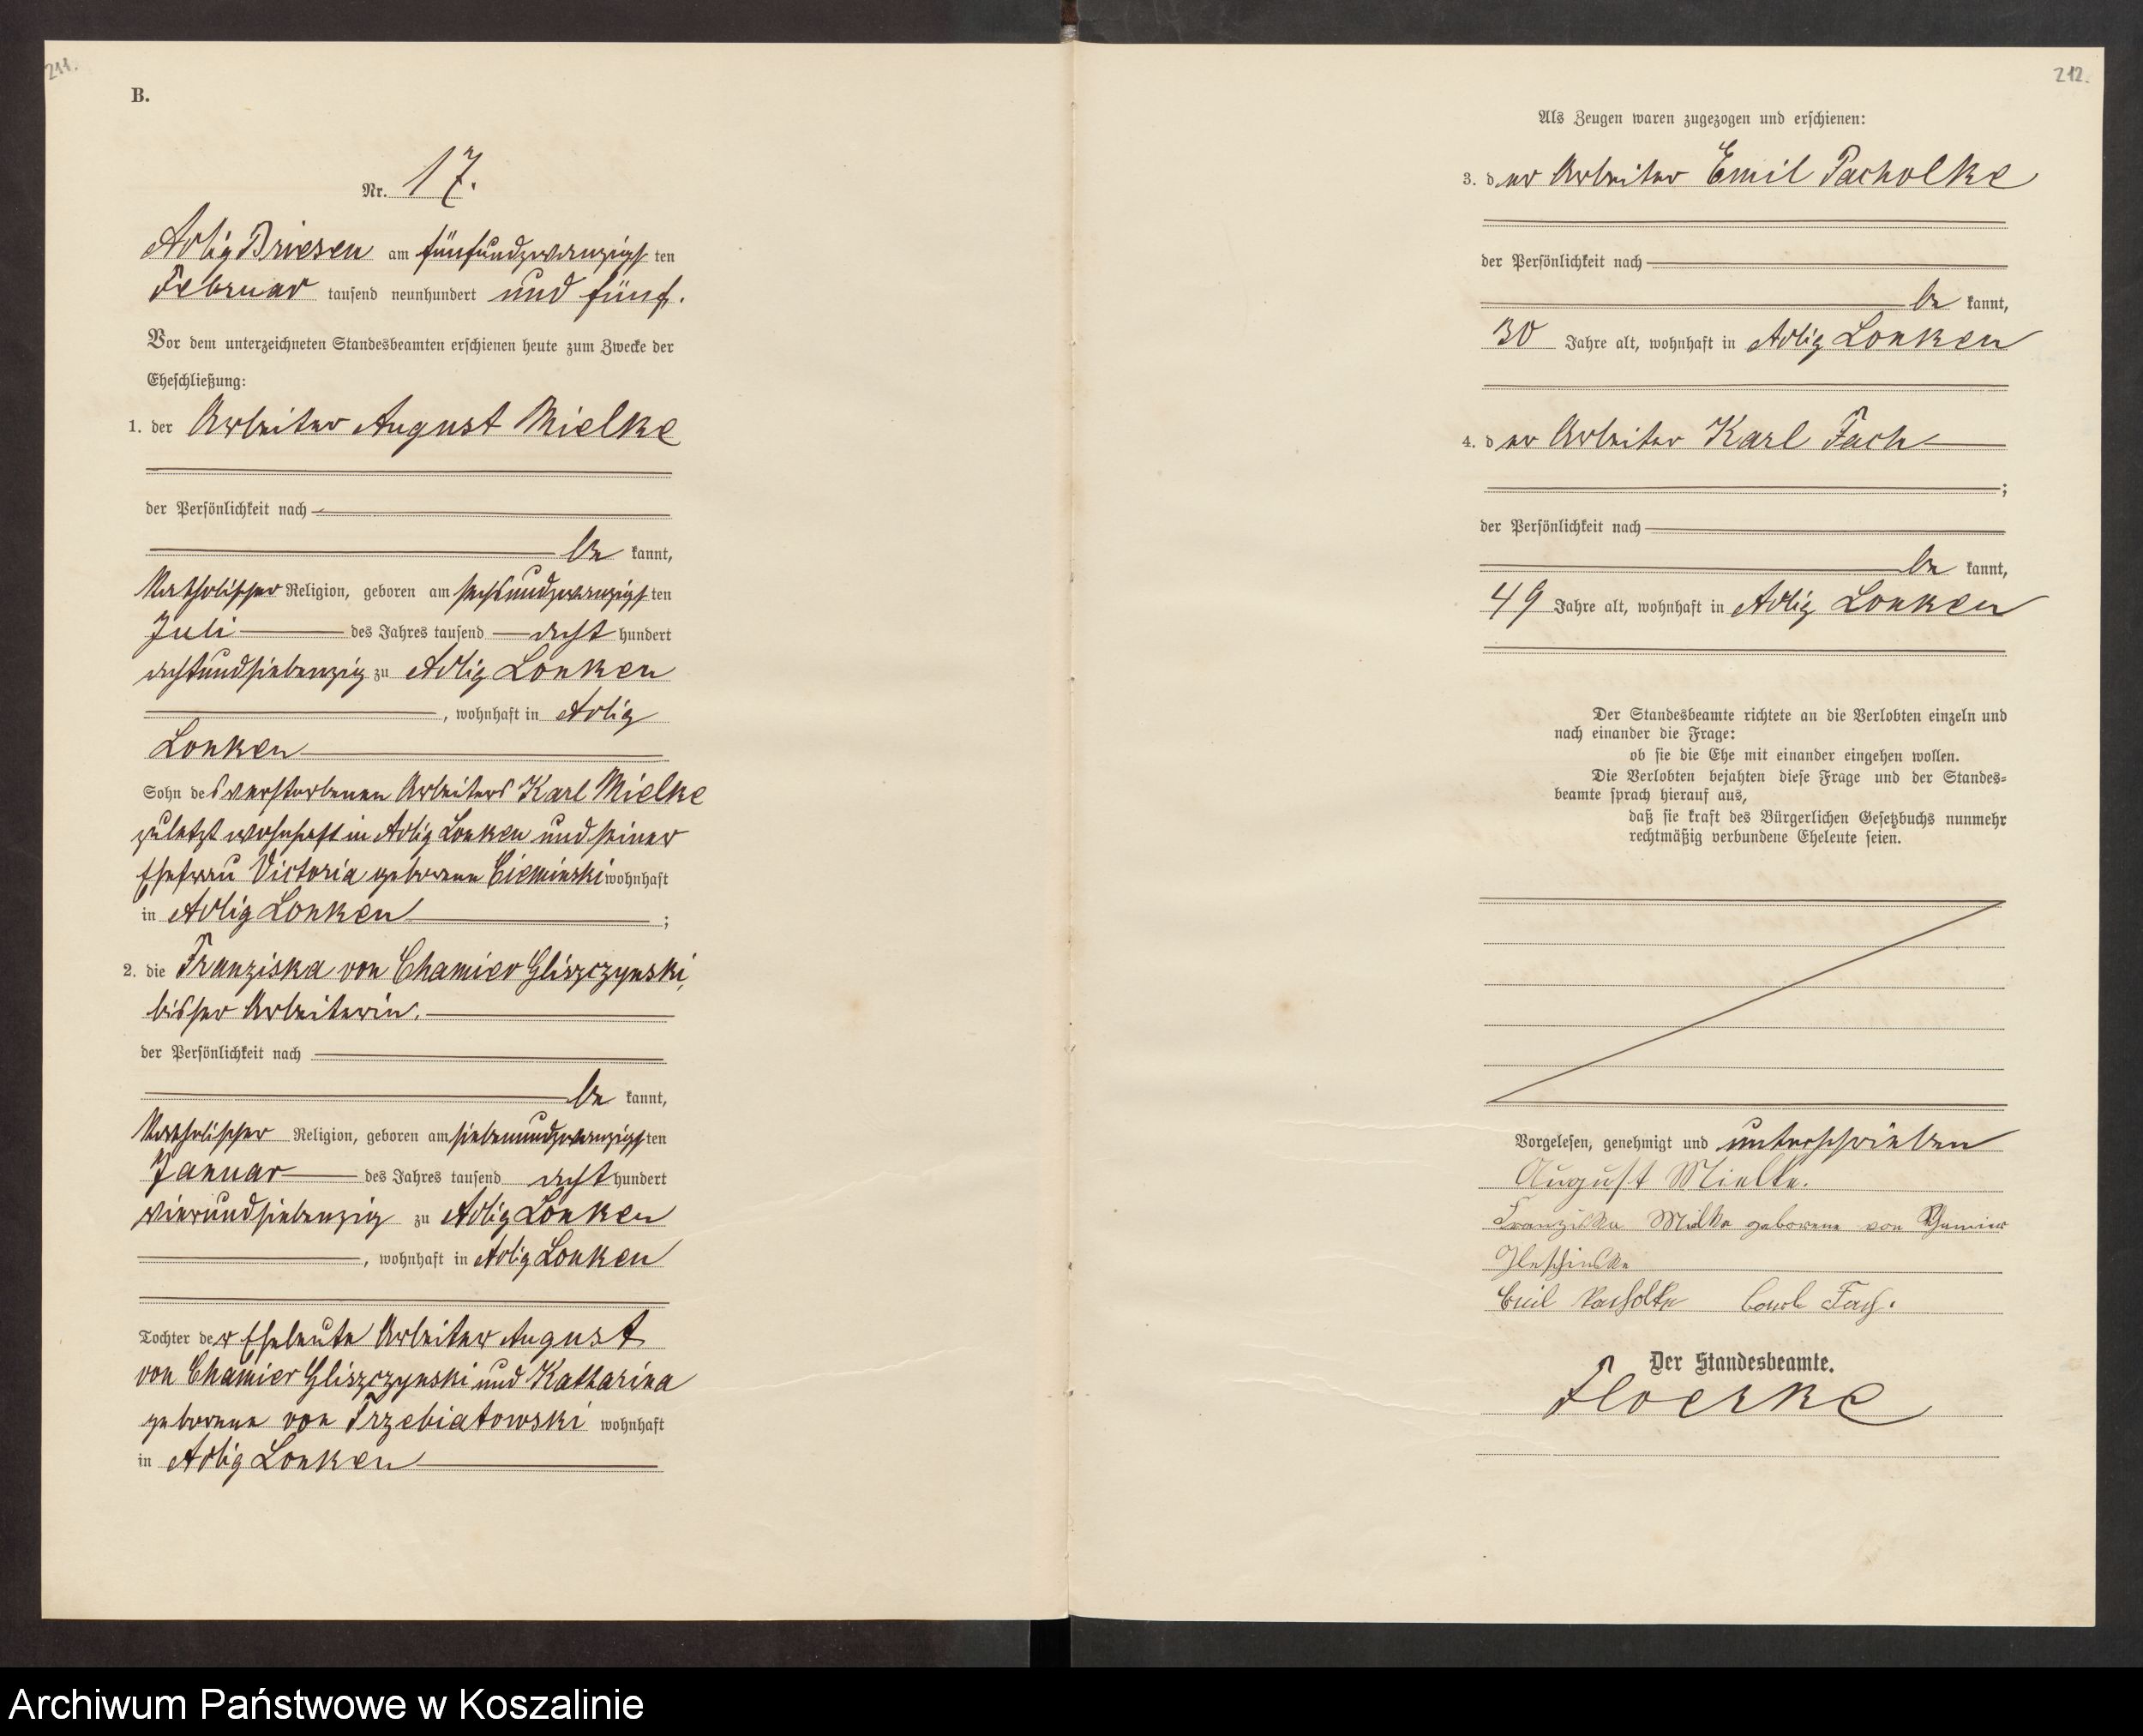 211.
B.
Nr. 17.
Adlig Briesen am fünfundzwanzigsten
Februar tausend neunhundert und fünf.
Vor dem unterzeichneten Standesbeamten erschienen heute zum Zwecke der
Eheschließung:
1. der Arbeiter August Mielke
der Persönlichkeit nach
be kannt,
katholischer Religion, geboren am sechsundzwanzigsten
Juli des Jahres tausend acht hundert
achtundsiebenzig zu Adlig Lonken
, wohnhaft in Adlig
Lonken
Sohn des verstorbenen Arbeiters Karl Mielke
zuletzt wohnhaft in Adlig Lonken und seiner
Ehefrau Victoria geborene Cieminski wohnhaft
in Adlig Lonken ;
2. die Franziska von Chamier Gliszczynski,
bisher Arbeiterin.
der Persönlichkeit nach
be kannt,
katholischer Religion, geboren am siebenundzwanzigsten
Januar des Jahres tausend acht hundert
vierundsiebenzig zu Adlig Lonken
, wohnhaft in Adlig Lonken
Tochter der Eheleute Arbeiter August
von Chamier Gliszczynski und Katharina
geborene von Trzebiatowski wohnhaft
in Adlig Lonken
212.
Als Zeugen waren zugezogen und erschienen:
3. der Arbeiter Emil Pacholke
der Persönlichkeit nach
be kannt,
30 Jahre alt, wohnhaft in Adlig Lonken
4. der Arbeiter Karl Fach
;
der Persönlichkeit nach
be kannt,
49 Jahre alt, wohnhaft in Adlig Lonken
Der Standesbeamte richtete an die Verlobten einzeln und
nach einander die Frage:
ob sie die Ehe mit einander eingehen wollen.
Die Verlobten bejahten diese Frage und der Standes-
beamte sprach hierauf aus,
daß sie kraft des Bürgerlichen Gesetzbuchs nunmehr
rechtmäßig verbundene Eheleute seien.
Vorgelesen, genehmigt und unterschrieben
August Mielke.
Franziska Milke geborene von Chamier
Gleschinske
Emil Pacholke Carl Fach.
Der Standesbeamte.
Floerke
Archiwum Państwowe w Koszalinie